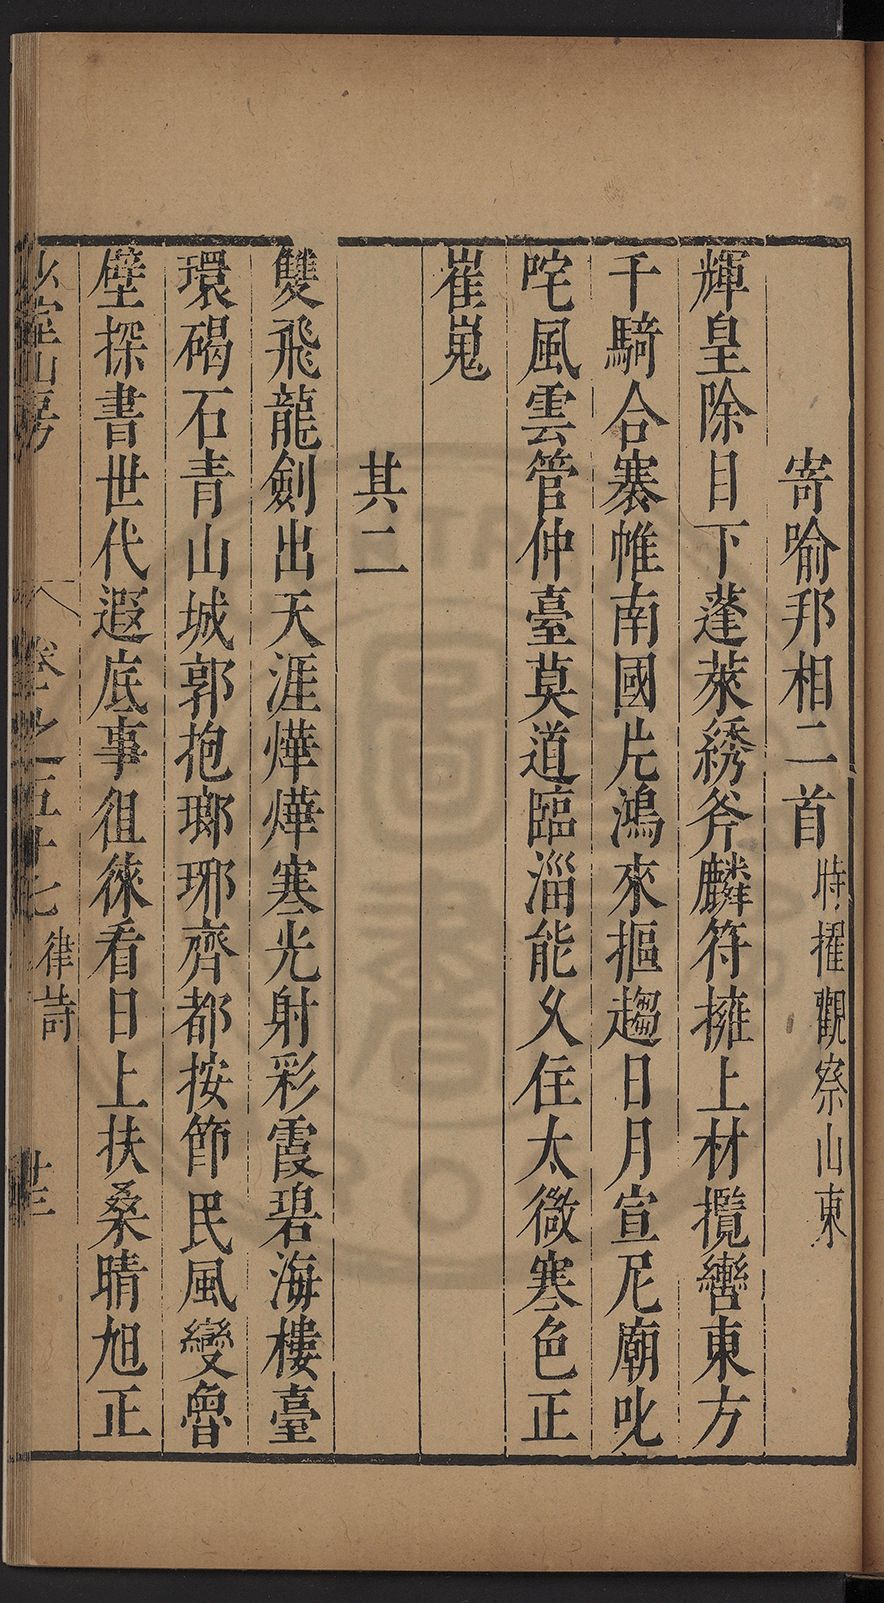 寄喻邦相二首時擢觀察山東
輝皇除目下蓬萊綉斧麟符擁上材攬轡東方
千騎合褰帷南國片鴻來摳趨日月宣尼廟叱
咤風雲管仲臺莫道臨淄能久住太微寒色正
崔嵬
其二
雙飛龍劍出天涯燁燁寒光射彩霞碧海樓臺
環碣石青山城郭抱瑯琊齊都按節民風變魯
壁探書世代遐底事徂徠看日上扶桑晴旭正
少室山房 卷之五十七 律詩 廿三